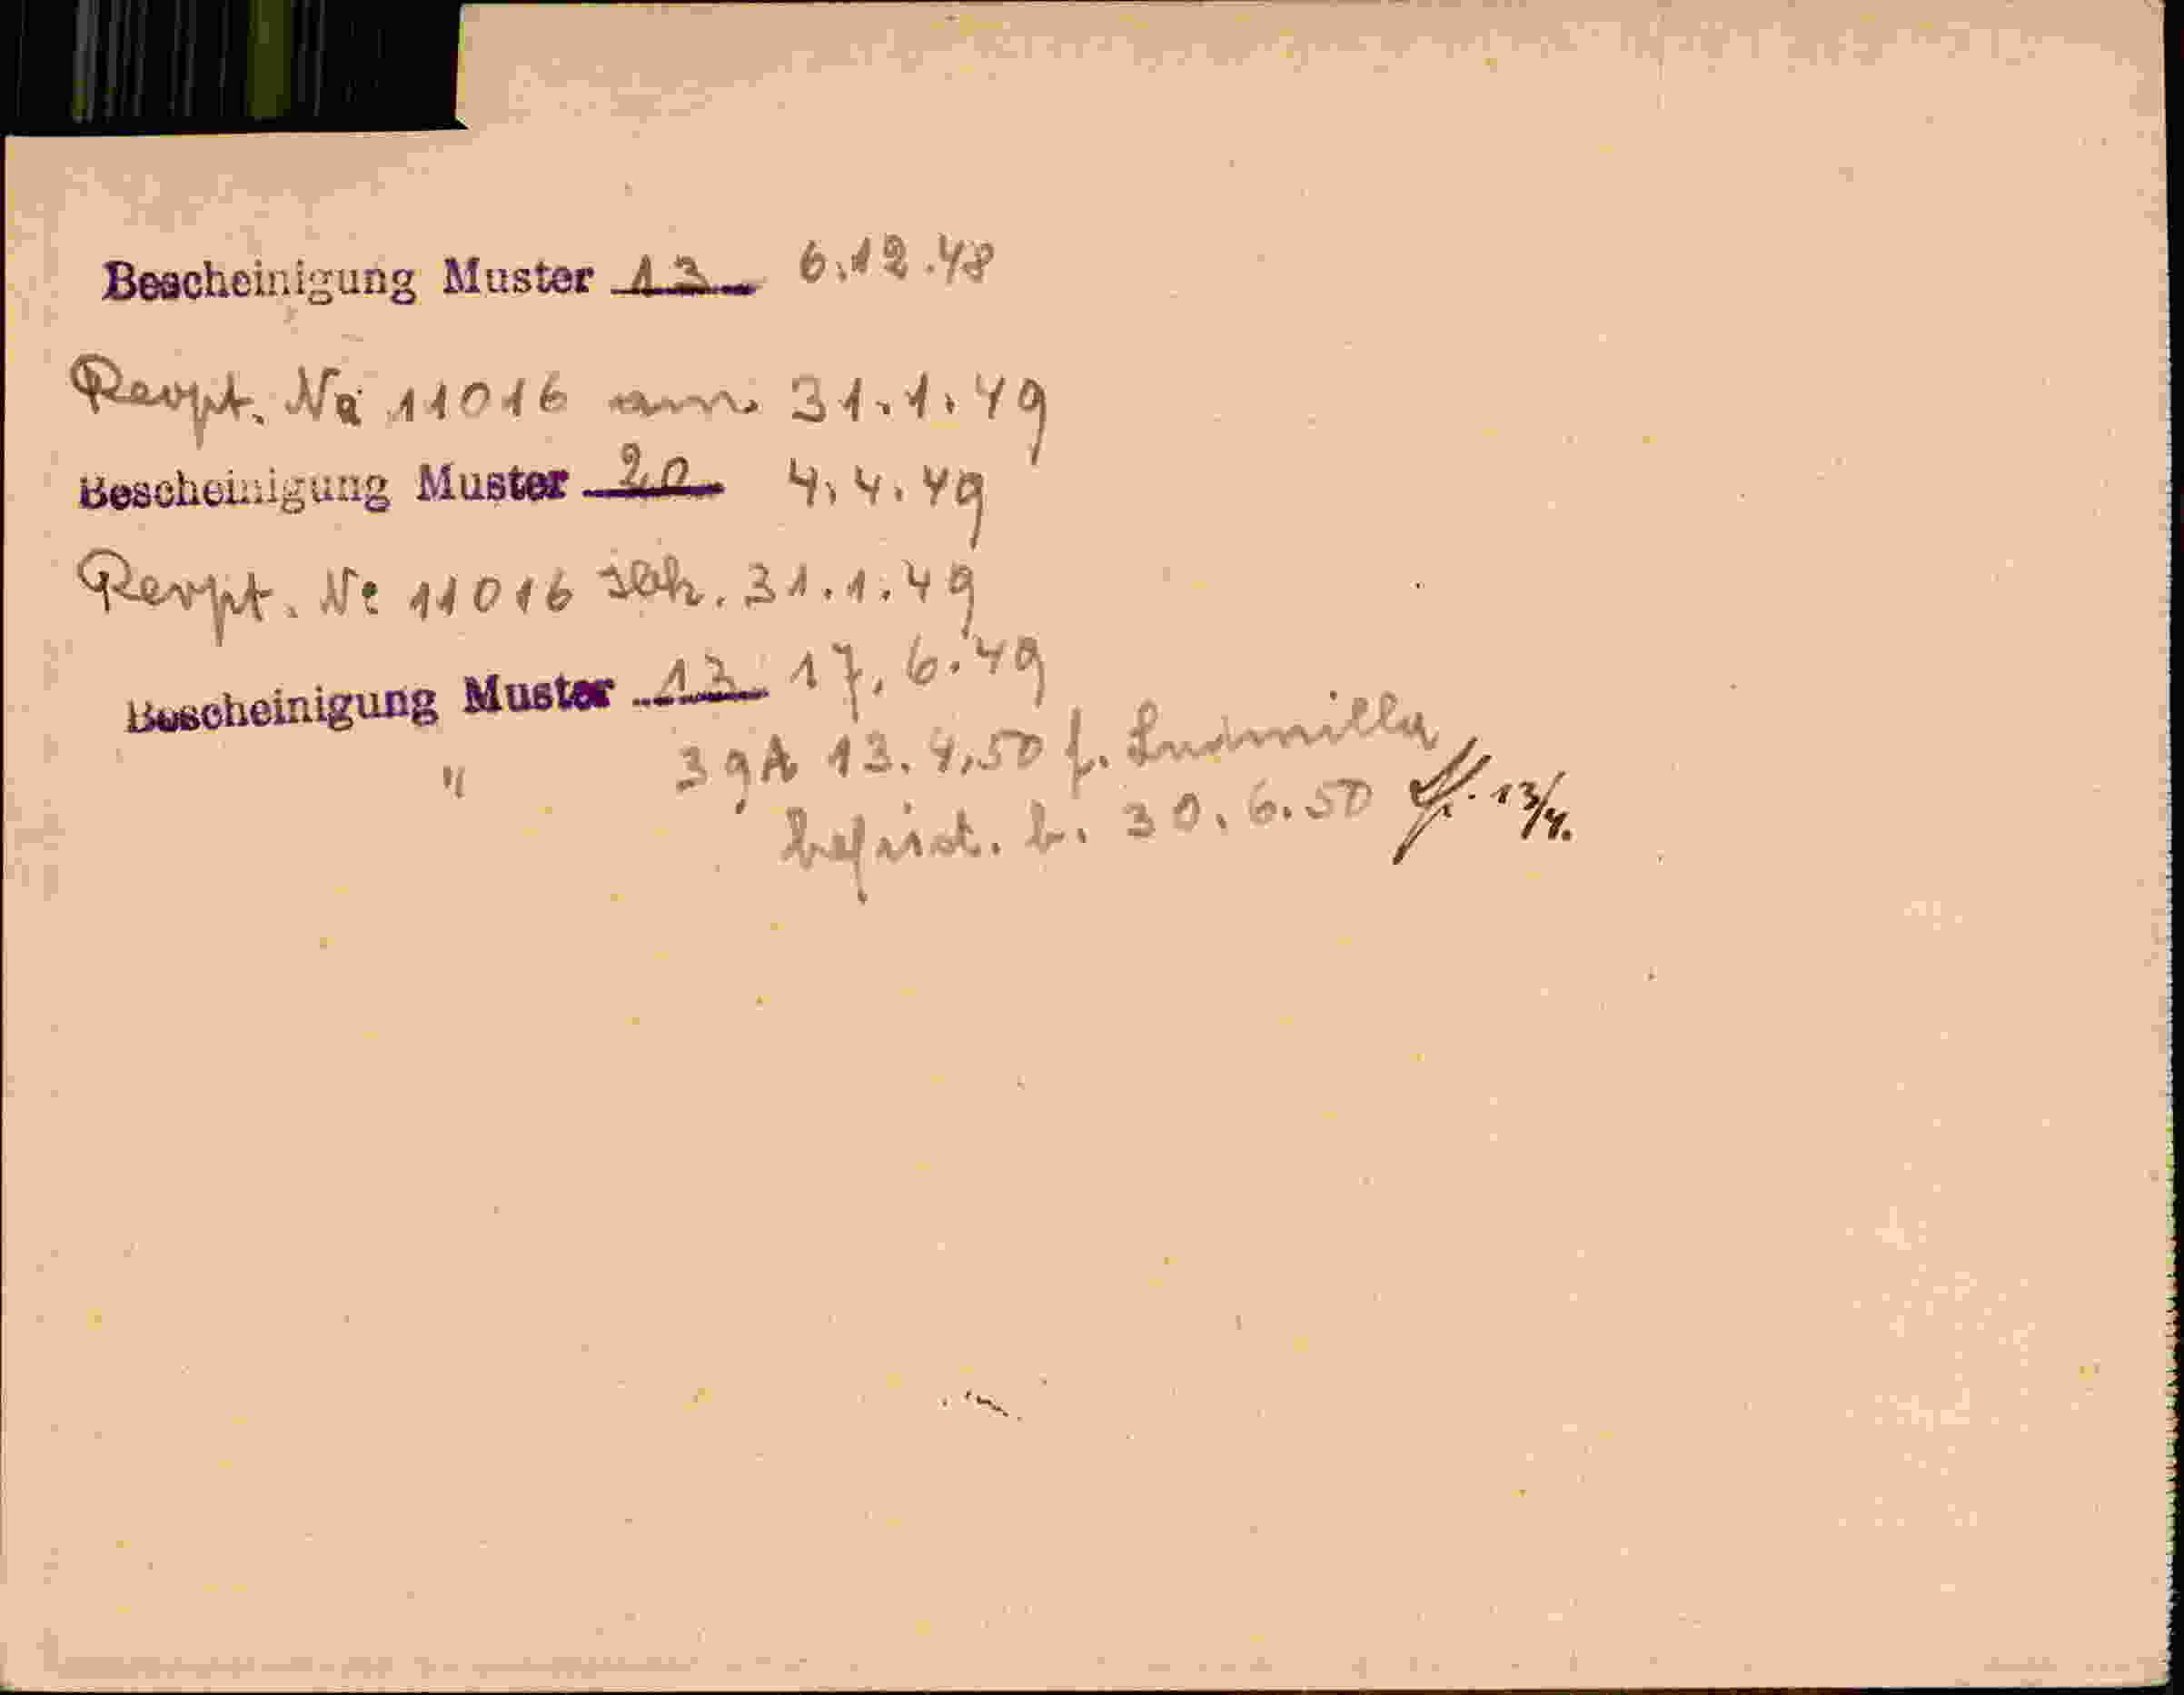 Bescheinigung Muster 13 6.12.48
Revpt. No 11016 am 31.1.49
Bescheinigung Muster 20 4.4.49
Revpt. No 11016 31.1.49
Bescheinigung Muster 13 17.6.49
" 39A 13.4.50 f. Ludmilla
befrist. b. 30.6.50 13/4.